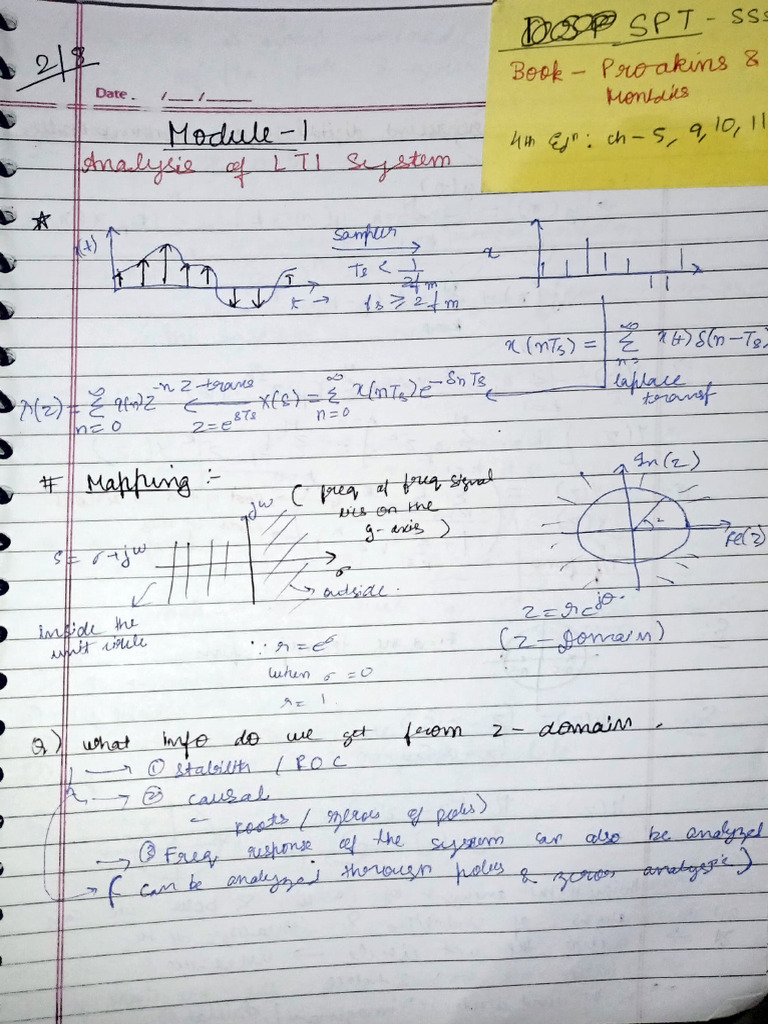 2/8
Date. /__/____
DSP SPT - SSS
Book - Proakins &
Monlakis
4th Edn : ch - 5, 9, 10, 11
Module - 1
Analysis of LTI System
x(t)
t →
Sampler
Ts < 1/2fm
fs ≥ 2fm
x
x(nTs) = ∞ Σ n= x(t) δ(n-Ts)
laplace
transf
X(z) = ∞ Σ n=0 x(n) z^-n
z-trans
z = e^sTs
X(s) = ∞ Σ n=0 x(nTs) e^-snTs
# Mapping :-
jω ( freq of freq signal
lies on the
g-axis )
Im(z)
Re(z)
s = σ+jω
σ
outside.
inside the
unit circle
z = re^jθ
(Z - Domain)
∵ r = e^σ
when σ = 0
r = 1
Q) what info do we get from z - domain.
→ ① Stability / ROC
→ ② causal
- roots / zeros of poles)
→ ③ Freq response of the system can also be analyzed
→ ( can be analyzed thorough poles & zeros analysis )